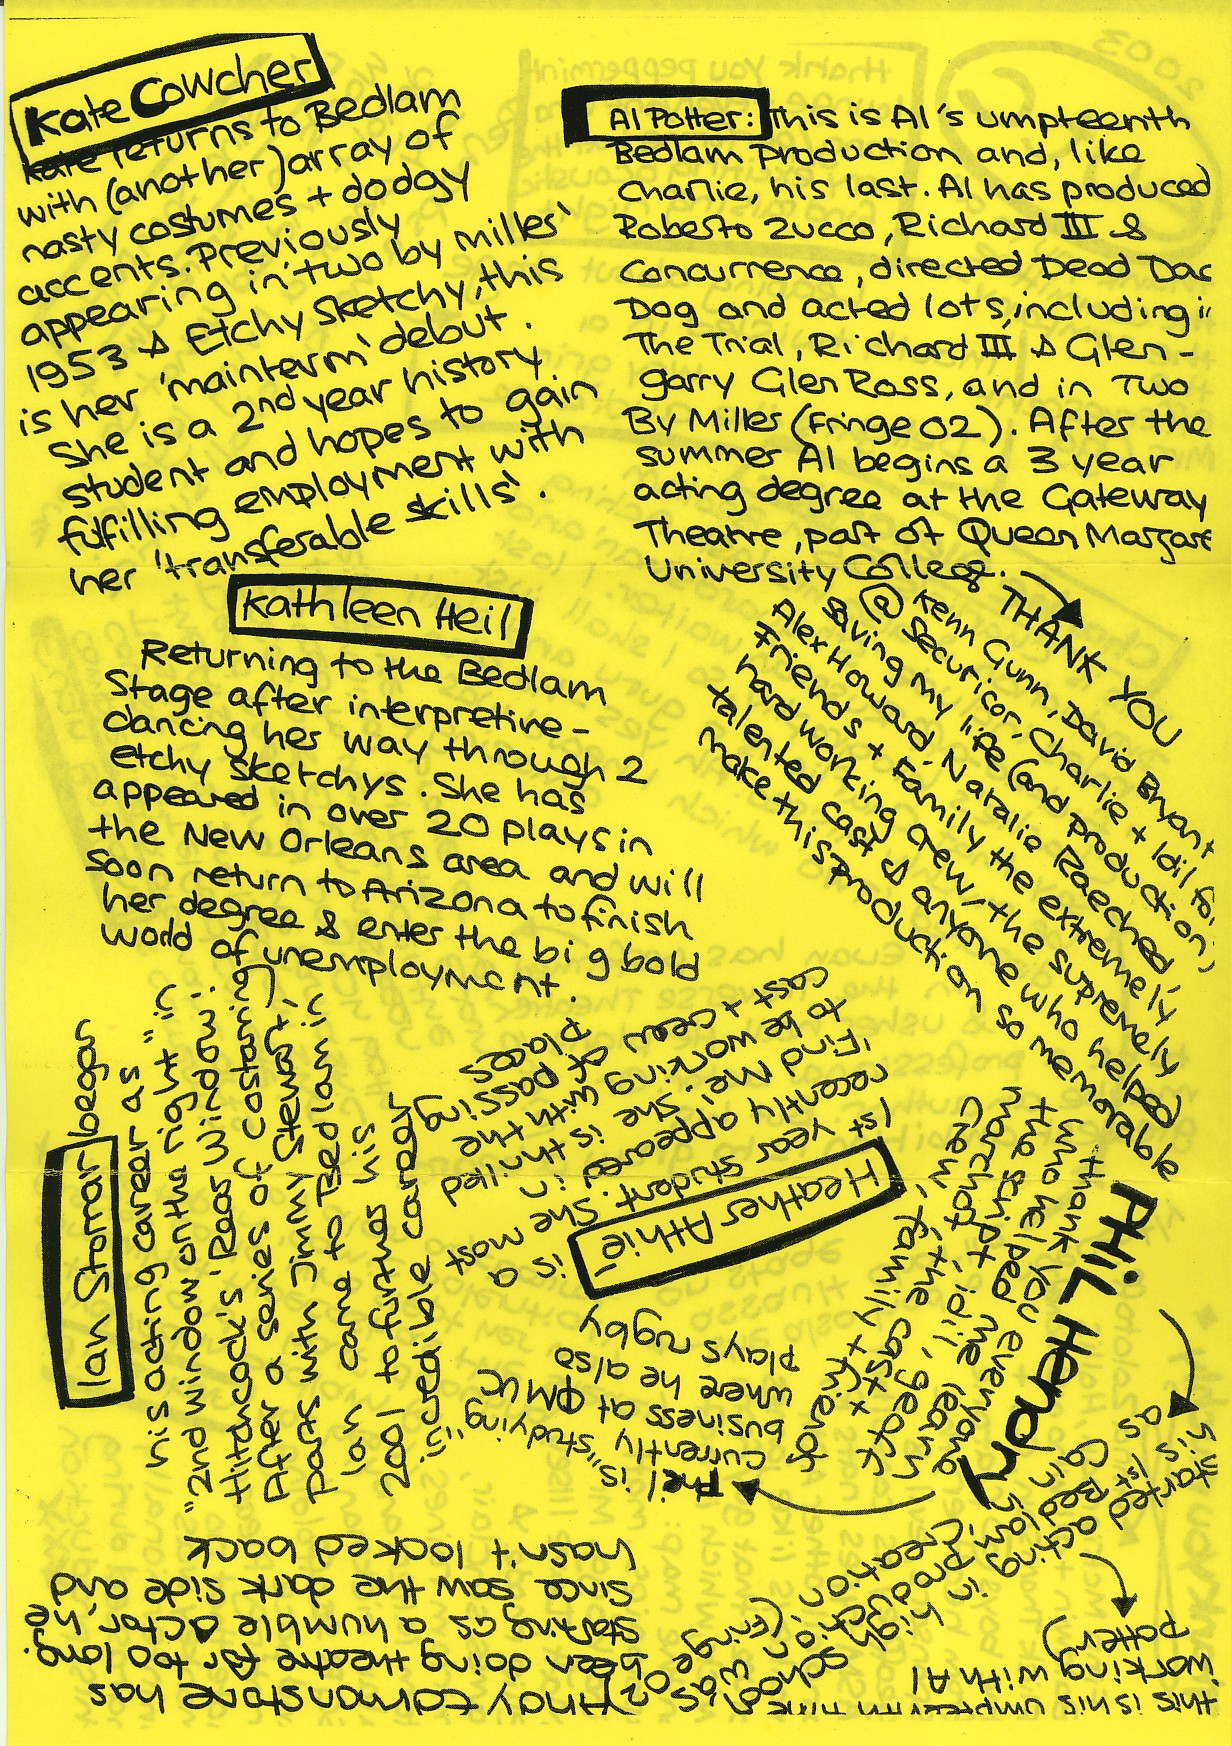 Kate Cowcher
Kate returns to Bedlam
with (another) array of
nasty costumes + dodgy
accents. Previously
appearing in 'two by miller'
1953 & Etchy Sketchy, this
is her 'mainterm' debut.
She is a 2nd year history
student and hopes to gain
fulfilling employment with
her 'transferable skills'.
Al Potter: This is Al's umpteenth
Bedlam production and, like
Charlie, his last. Al has produced
Roberto Zucco, Richard III &
Concurrence, directed Dead Dad
Dog and acted lots, including in
The Trial, Richard III & Glen-
garry Glen Ross, and in Two
By Miller (Fringe 02). After the
summer Al begins a 3 year
acting degree at the Gateway
Theatre, part of Queen Margaret
University College.
THANK YOU
Kenn Gunn, David Bryant
@ Securicor, Charlie + Idil for
saving my life (and production)
Alex Howard, Natalie Raeched,
Friends + Family the extremely
hard working crew, the supremely
talented cast & anyone who helped
make this production so memorable
Kathleen Heil
Returning to the Bedlam
Stage after interpretive-
dancing her way through 2
etchy sketchys. She has
appeared in over 20 plays in
the New Orleans area and will
soon return to Arizona to finish
her degree & enter the big bold
world of unemployment.
Ian Stomar began
his acting career as
"2nd window on the right" in
Hitchcock's 'Rear Window'.
After a series of costarring
parts with Jimmy Stewart,
Ian came to Bedlam in
2001 to further his
"incredible career"
Heather Athie,
is a
1st year student. She most
recently appeared in
'Find Me'. She is thrilled
to be working with the
cast + crew of passing
places
PHIL Hendry
thank you everyone
who helped me learn
the script, idil, geach
marchant, the cast +
crew, family + friends
Phil is "studying"
currently
business at QMUC
where he also
plays rugby
his 1st
started acting in high school as
Cain in
Bedlam production was
(Creation) (Fringe 02)
this is his umpteenth time
working with Al
Potter)
Andy Edmonstone has
been doing theatre for too long.
Starting as a humble actor, he
since saw the dark side and
hasn't looked back